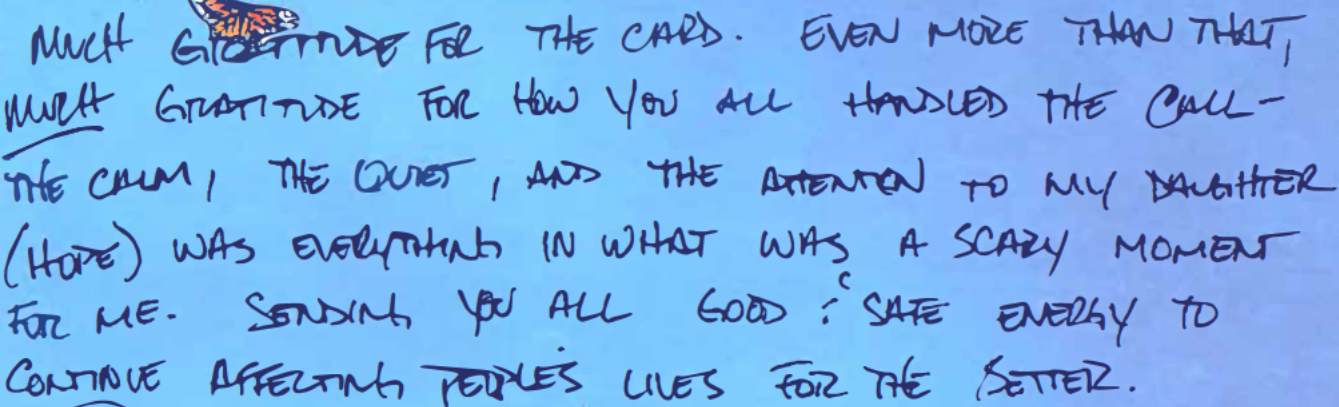 MUCH GRATITUDE FOR THE CARD. EVEN MORE THAN THAT,
MUCH GRATITUDE FOR HOW YOU ALL HANDLED THE CALL-
THE CALM, THE QUIET, AND THE ATTENTION TO MY DAUGHTER
(HOPE) WAS EVERYTHING IN WHAT WAS A SCARY MOMENT
FOR ME. SENDING YOU ALL GOOD & SAFE ENERGY TO
CONTINUE AFFECTING PEOPLE'S LIVES FOR THE BETTER.